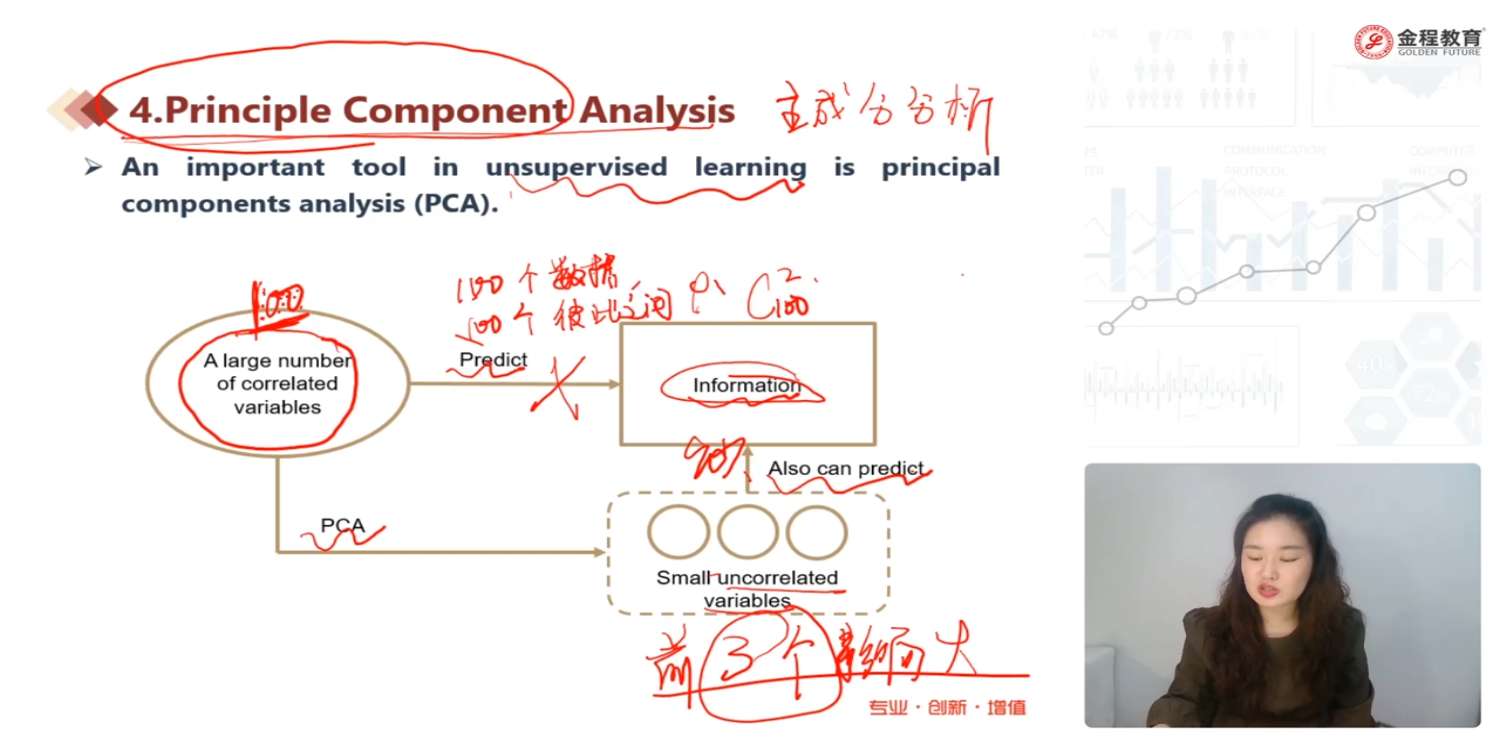 金程教育
GOLDEN FUTURE
4.Principle Component Analysis
主成分分析
An important tool in unsupervised learning is principal
components analysis (PCA).
100
100个数据
100个彼此之间 ρ、C²100
A large number
of correlated
variables
Predict
Information
Also can predict
PCA
Small uncorrelated
variables
前3个影响大
专业·创新·增值
COMMUNICATION
PROTOCOL